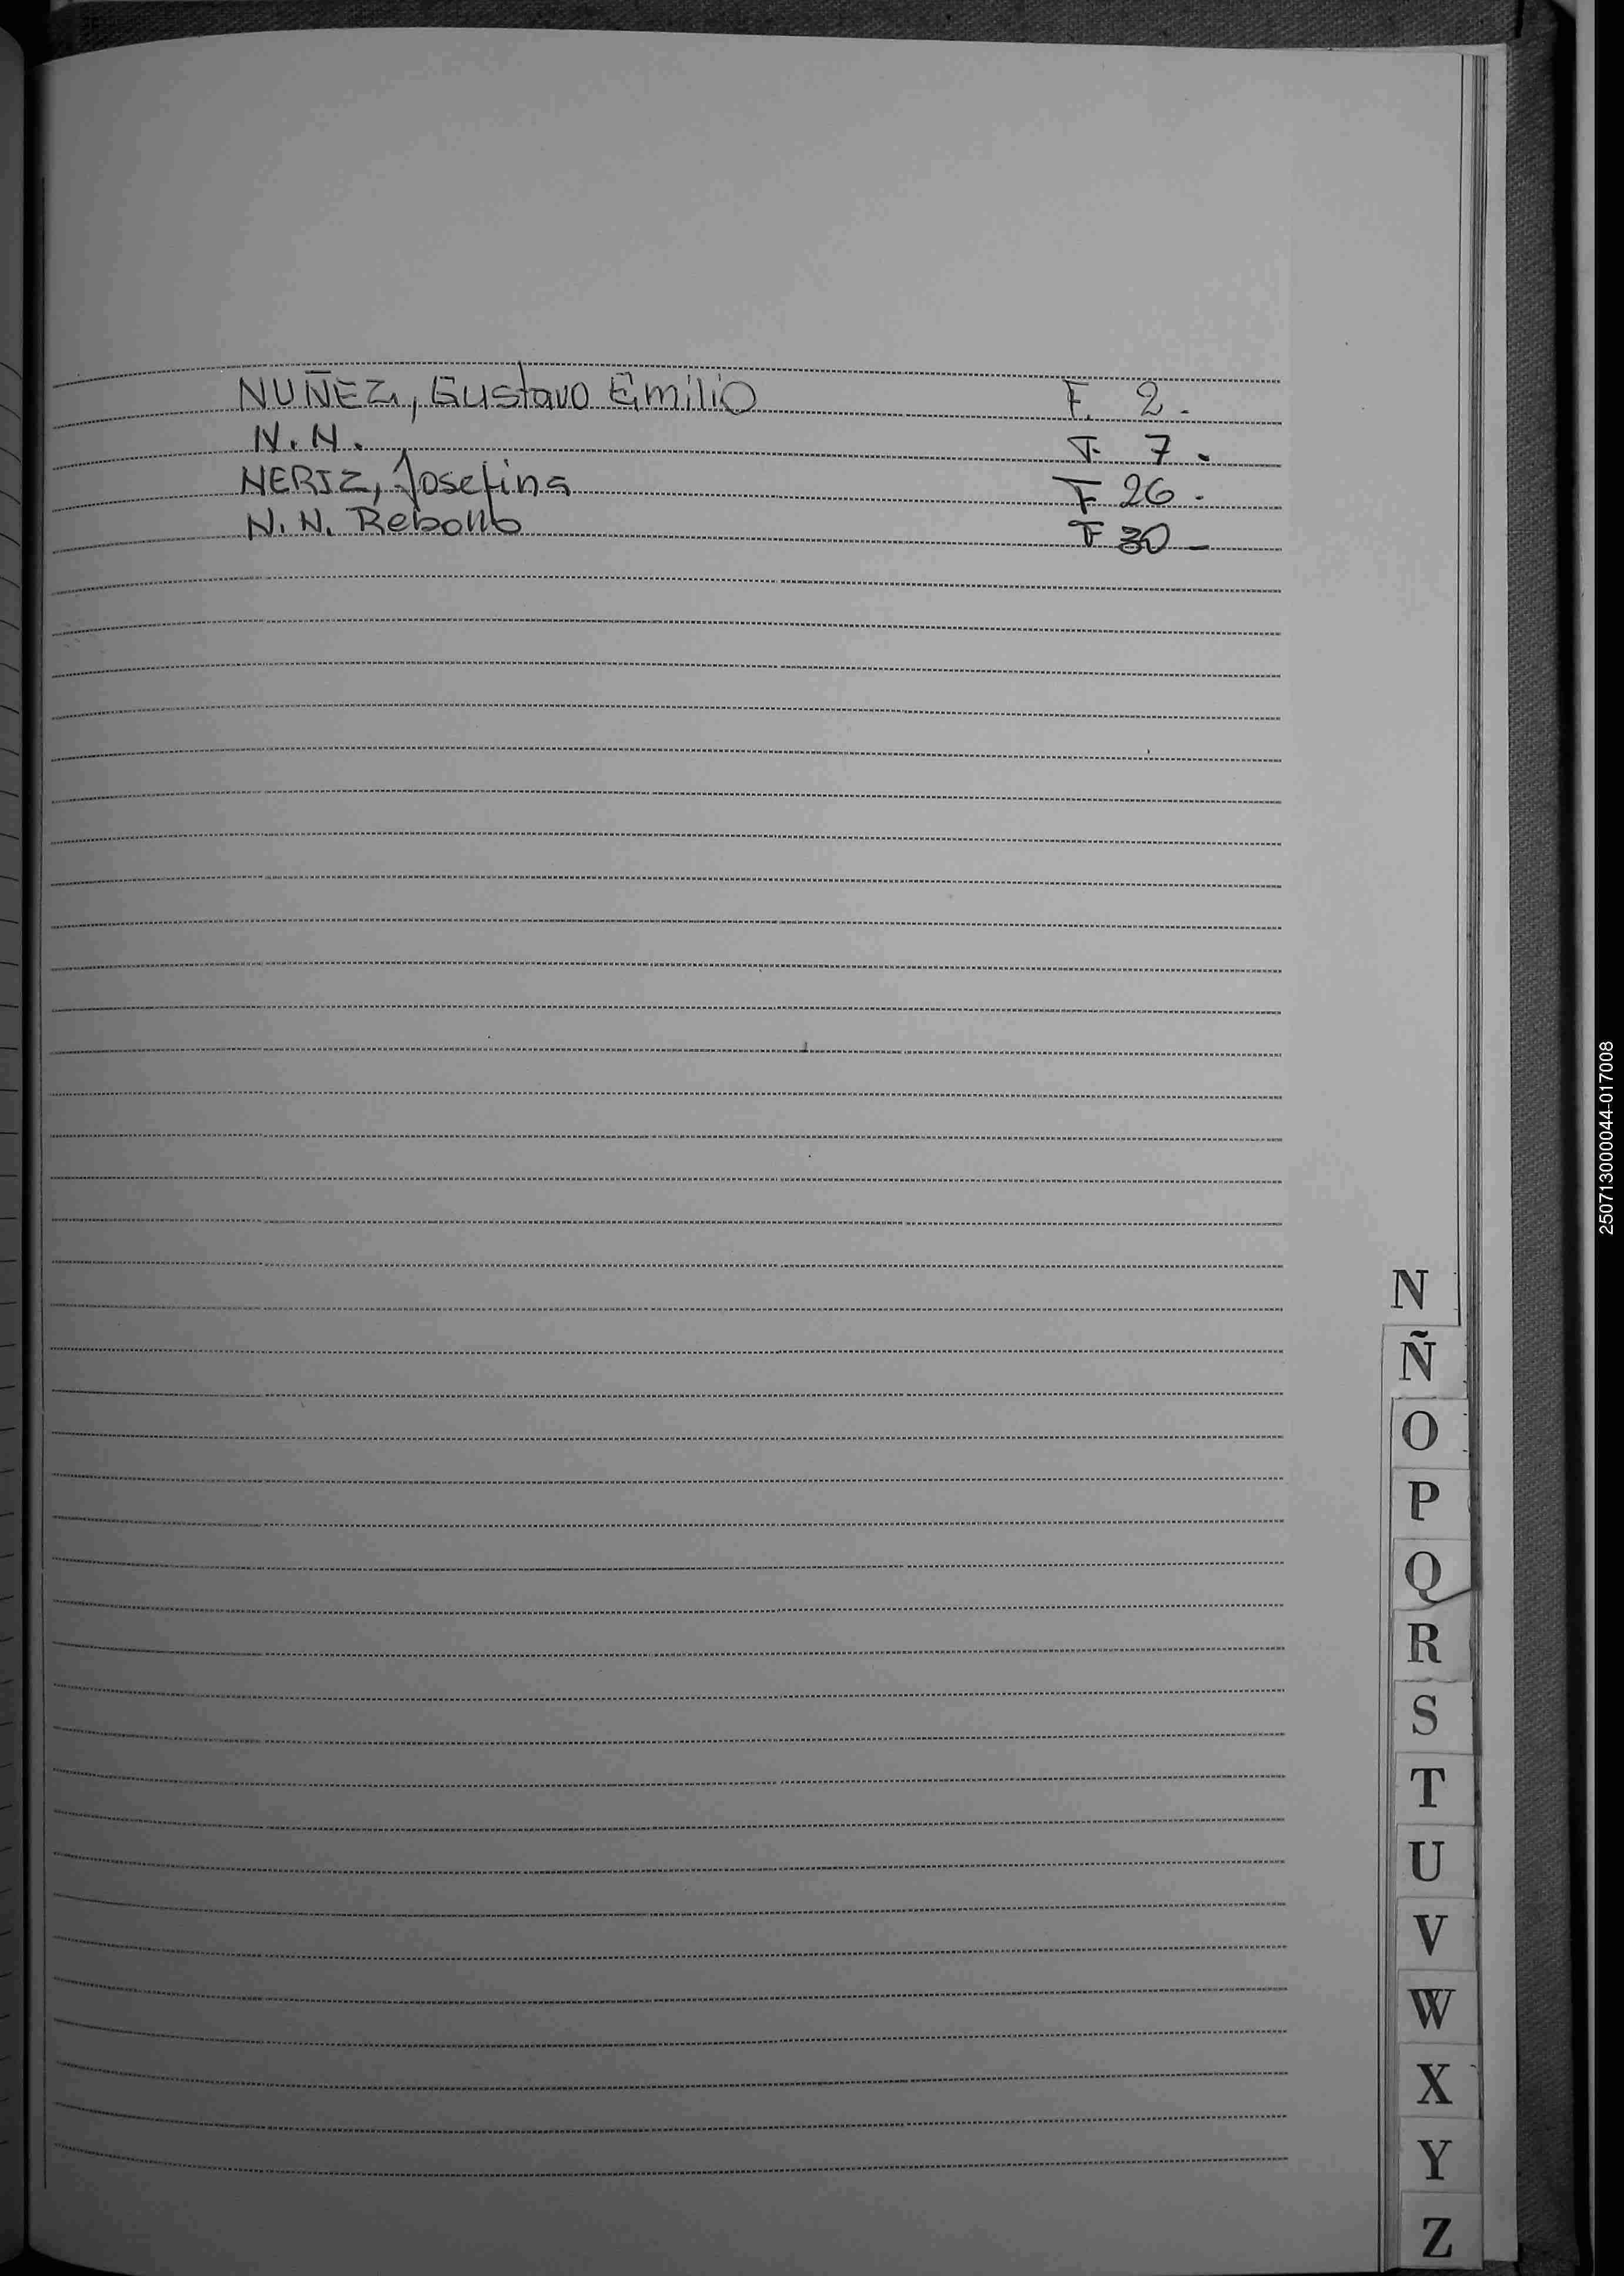 NUÑEZ, Gustavo Emilio F. 2.
N.N. F. 7.
NERIZ, Josefina F 26.
N.N. Rebollo F 30-
N
Ñ
O
P
Q
R
S
T
U
V
W
X
Y
Z
250713000044-017008